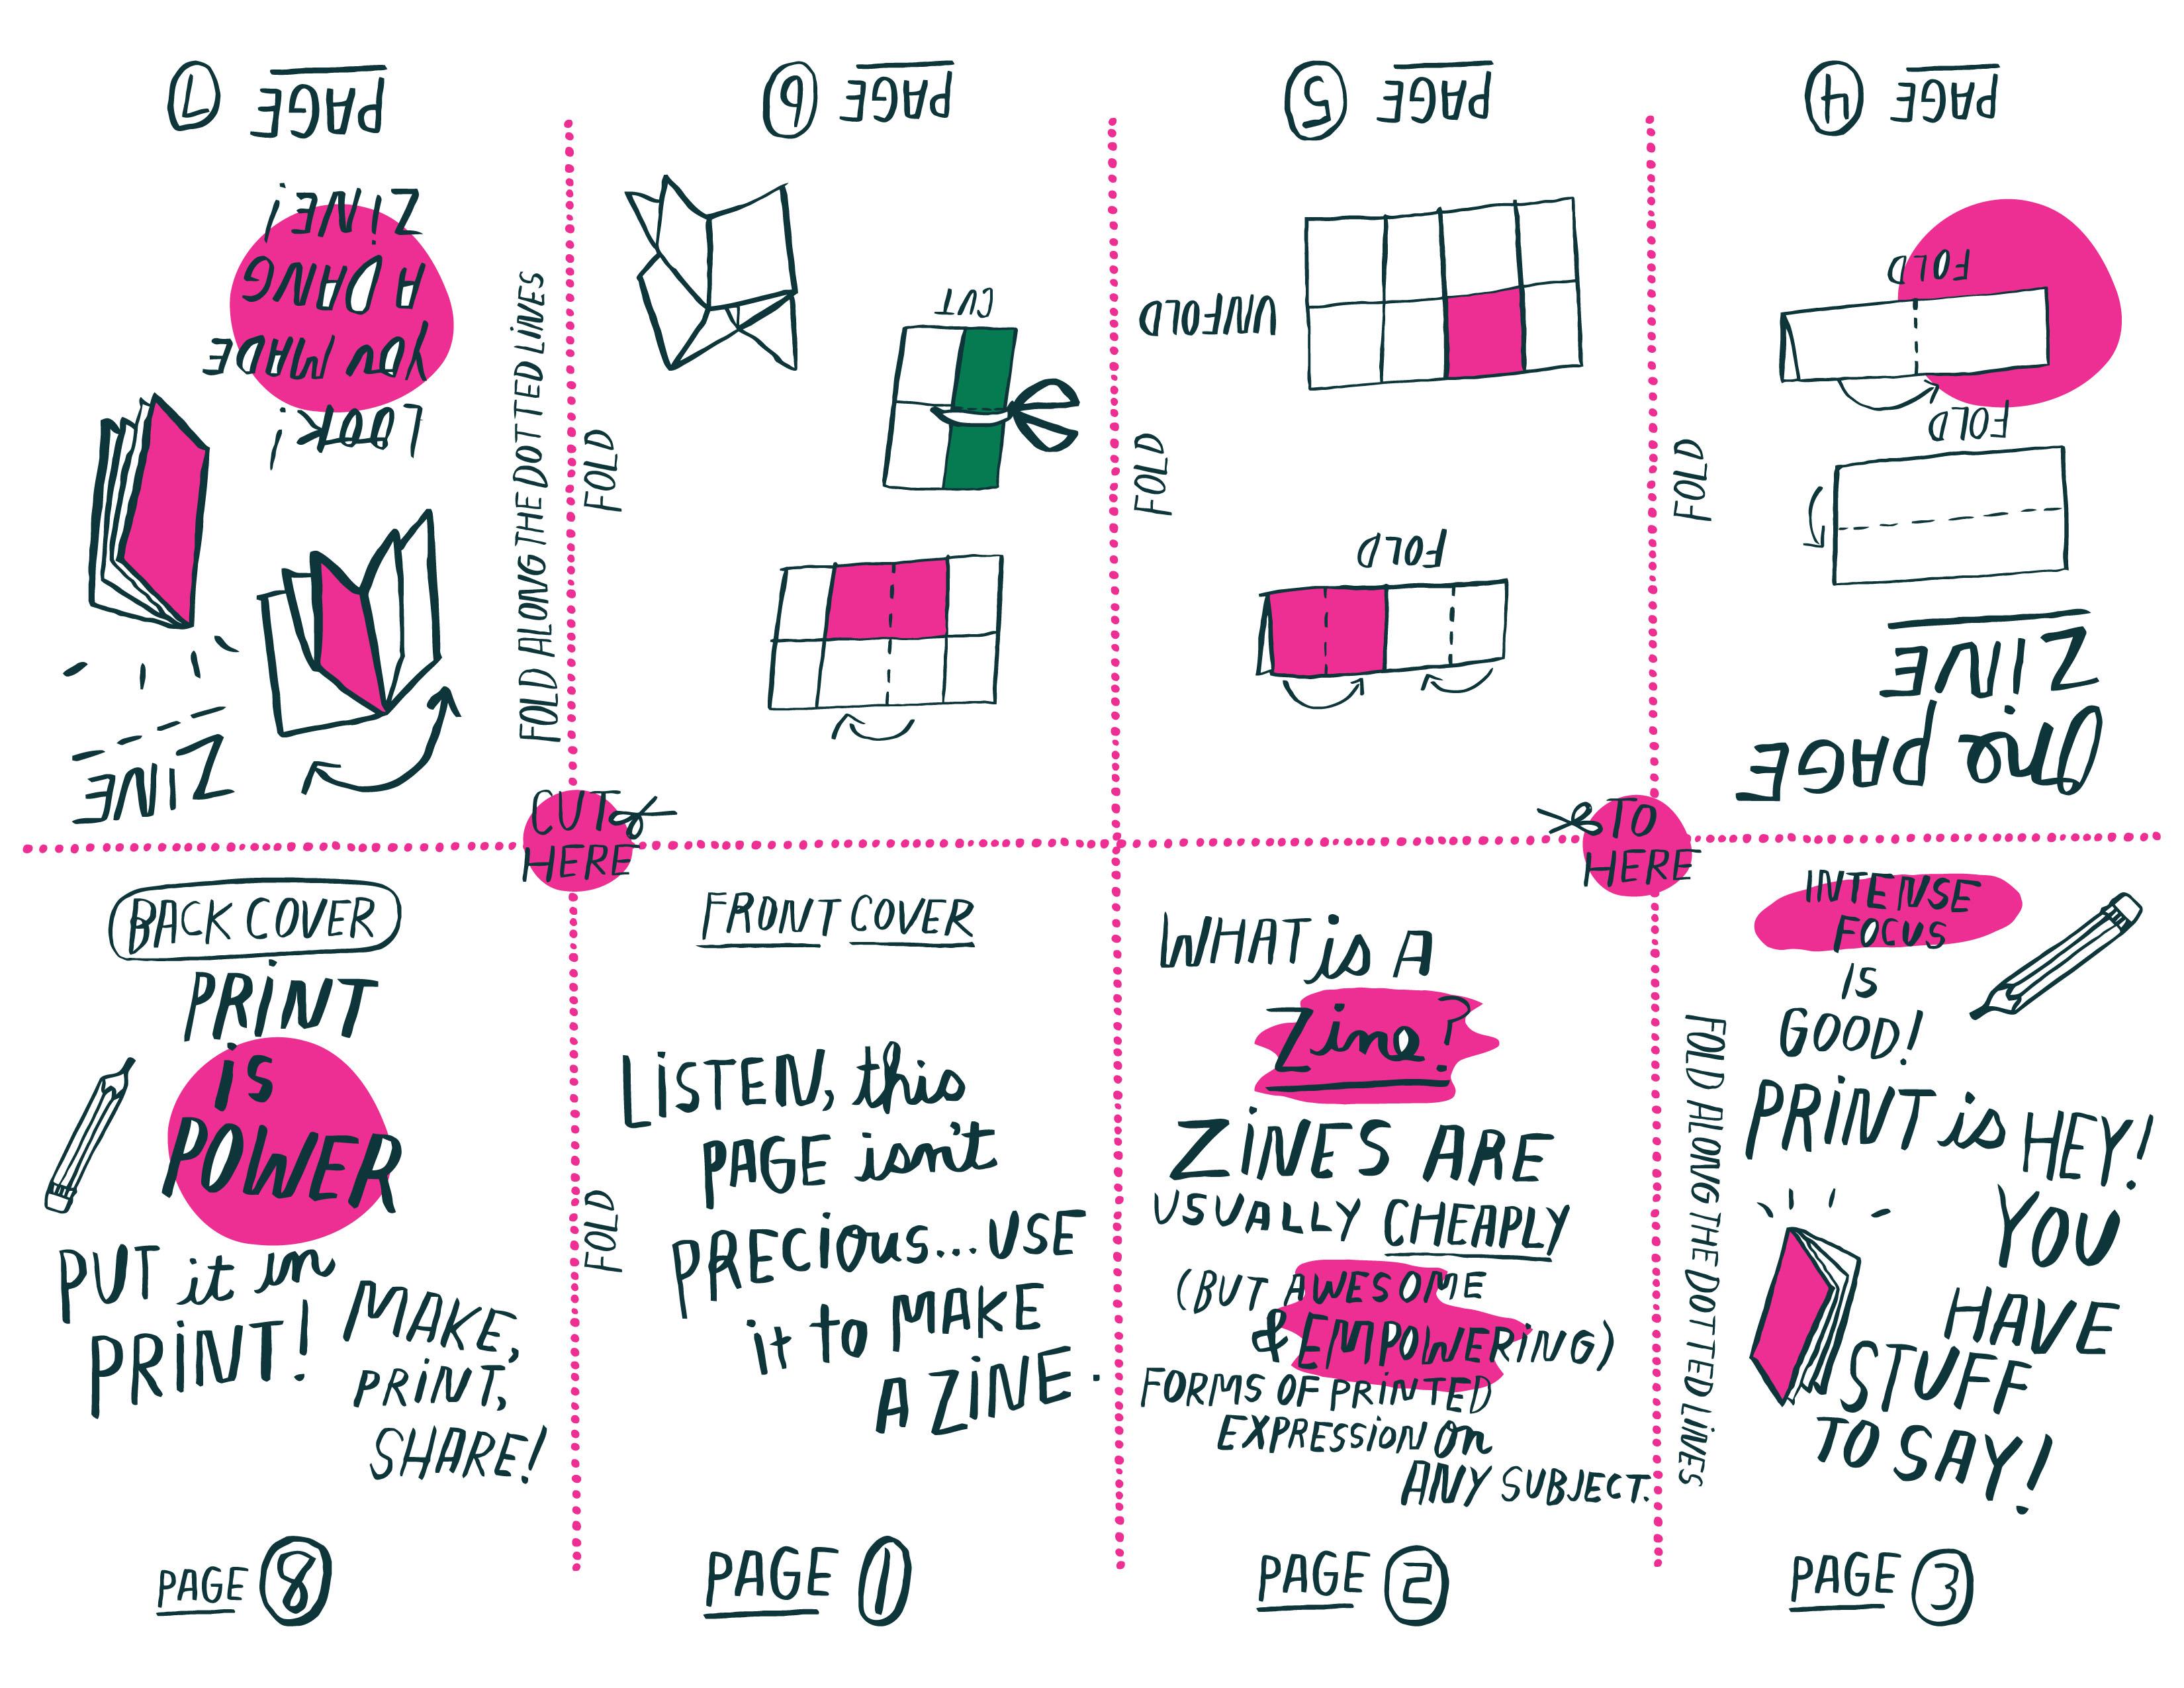 FRONT COVER
LiSTEN, this
PAGE isn't
PRECious... USE
it to MAKE
A ZiNE.
PAGE 1
WHAT is A
Zine?
ZiNES ARE
USUALLY CHEAPLY
(BUT AWESOME
& EMPOWERiNG)
FORMS OF PRiNTED
EXPRESSiON On
ANY SUBJECT.
PAGE 2
INTENSE
FOCUS
IS
GOOD!
PRiNT is HEY!
YOU
HAVE
STUFF
TO SAY!
PAGE 3
One PAGE
ZINE
FOLD
FOLD
PAGE 4
FOLD
UNFOLD
PAGE 5
CUT
PAGE 6
ZINE
LOOK!
YOU MADE
A DANG
ZINE!
PAGE 7
BACK COVER
PRiNT
iS
POWER
PUT it in
PRiNT!
MAKE,
PRiNT,
SHARE!
PAGE 8
FOLD ALONG THE DOTTED LiNES
FOLD
FOLD
FOLD
CUT
HERE
TO
HERE
FOLD
FOLD ALONG THE DOTTED LiNES